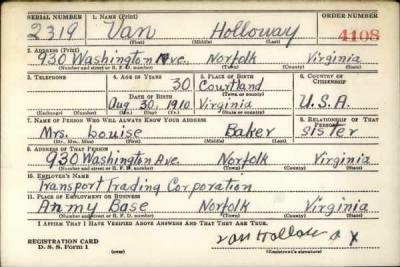 SERIAL NUMBER 1. NAME (Print) ORDER NUMBER
2319 Van Holloway 4108
(First) (Middle) (Last)
2. ADDRESS (Print)
930 Washington Ave., Norfolk Virginia
(Number and street or R. F. D. number) (Town) (County) (State)
3. TELEPHONE 4. AGE IN YEARS 5. PLACE OF BIRTH 6. COUNTRY OF CITIZENSHIP
30 Courtland
DATE OF BIRTH (Town or county)
Aug 30, 1910 Virginia U.S.A.
(Exchange) (Number) (Mo.) (Day) (Yr.) (State or country)
7. NAME OF PERSON WHO WILL ALWAYS KNOW YOUR ADDRESS 8. RELATIONSHIP OF THAT PERSON
Mrs. Louise Baker sister
(Mr., Mrs., Miss) (First) (Middle) (Last)
9. ADDRESS OF THAT PERSON
930 Washington Ave. Norfolk Virginia
(Number and street or R. F. D. number) (Town) (County) (State)
10. EMPLOYER'S NAME
Transport Trading Corporation
11. PLACE OF EMPLOYMENT OR BUSINESS
Army Base Norfolk Virginia
(Number and street or R. F. D. number) (Town) (County) (State)
I AFFIRM THAT I HAVE VERIFIED ABOVE ANSWERS AND THAT THEY ARE TRUE.
REGISTRATION CARD
D. S. S. Form 1 (over) (Registrant's signature)